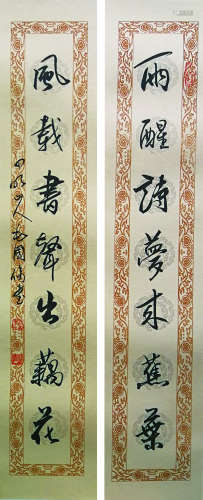 雨醒詩夢來蕉葉
風載書聲出藕花